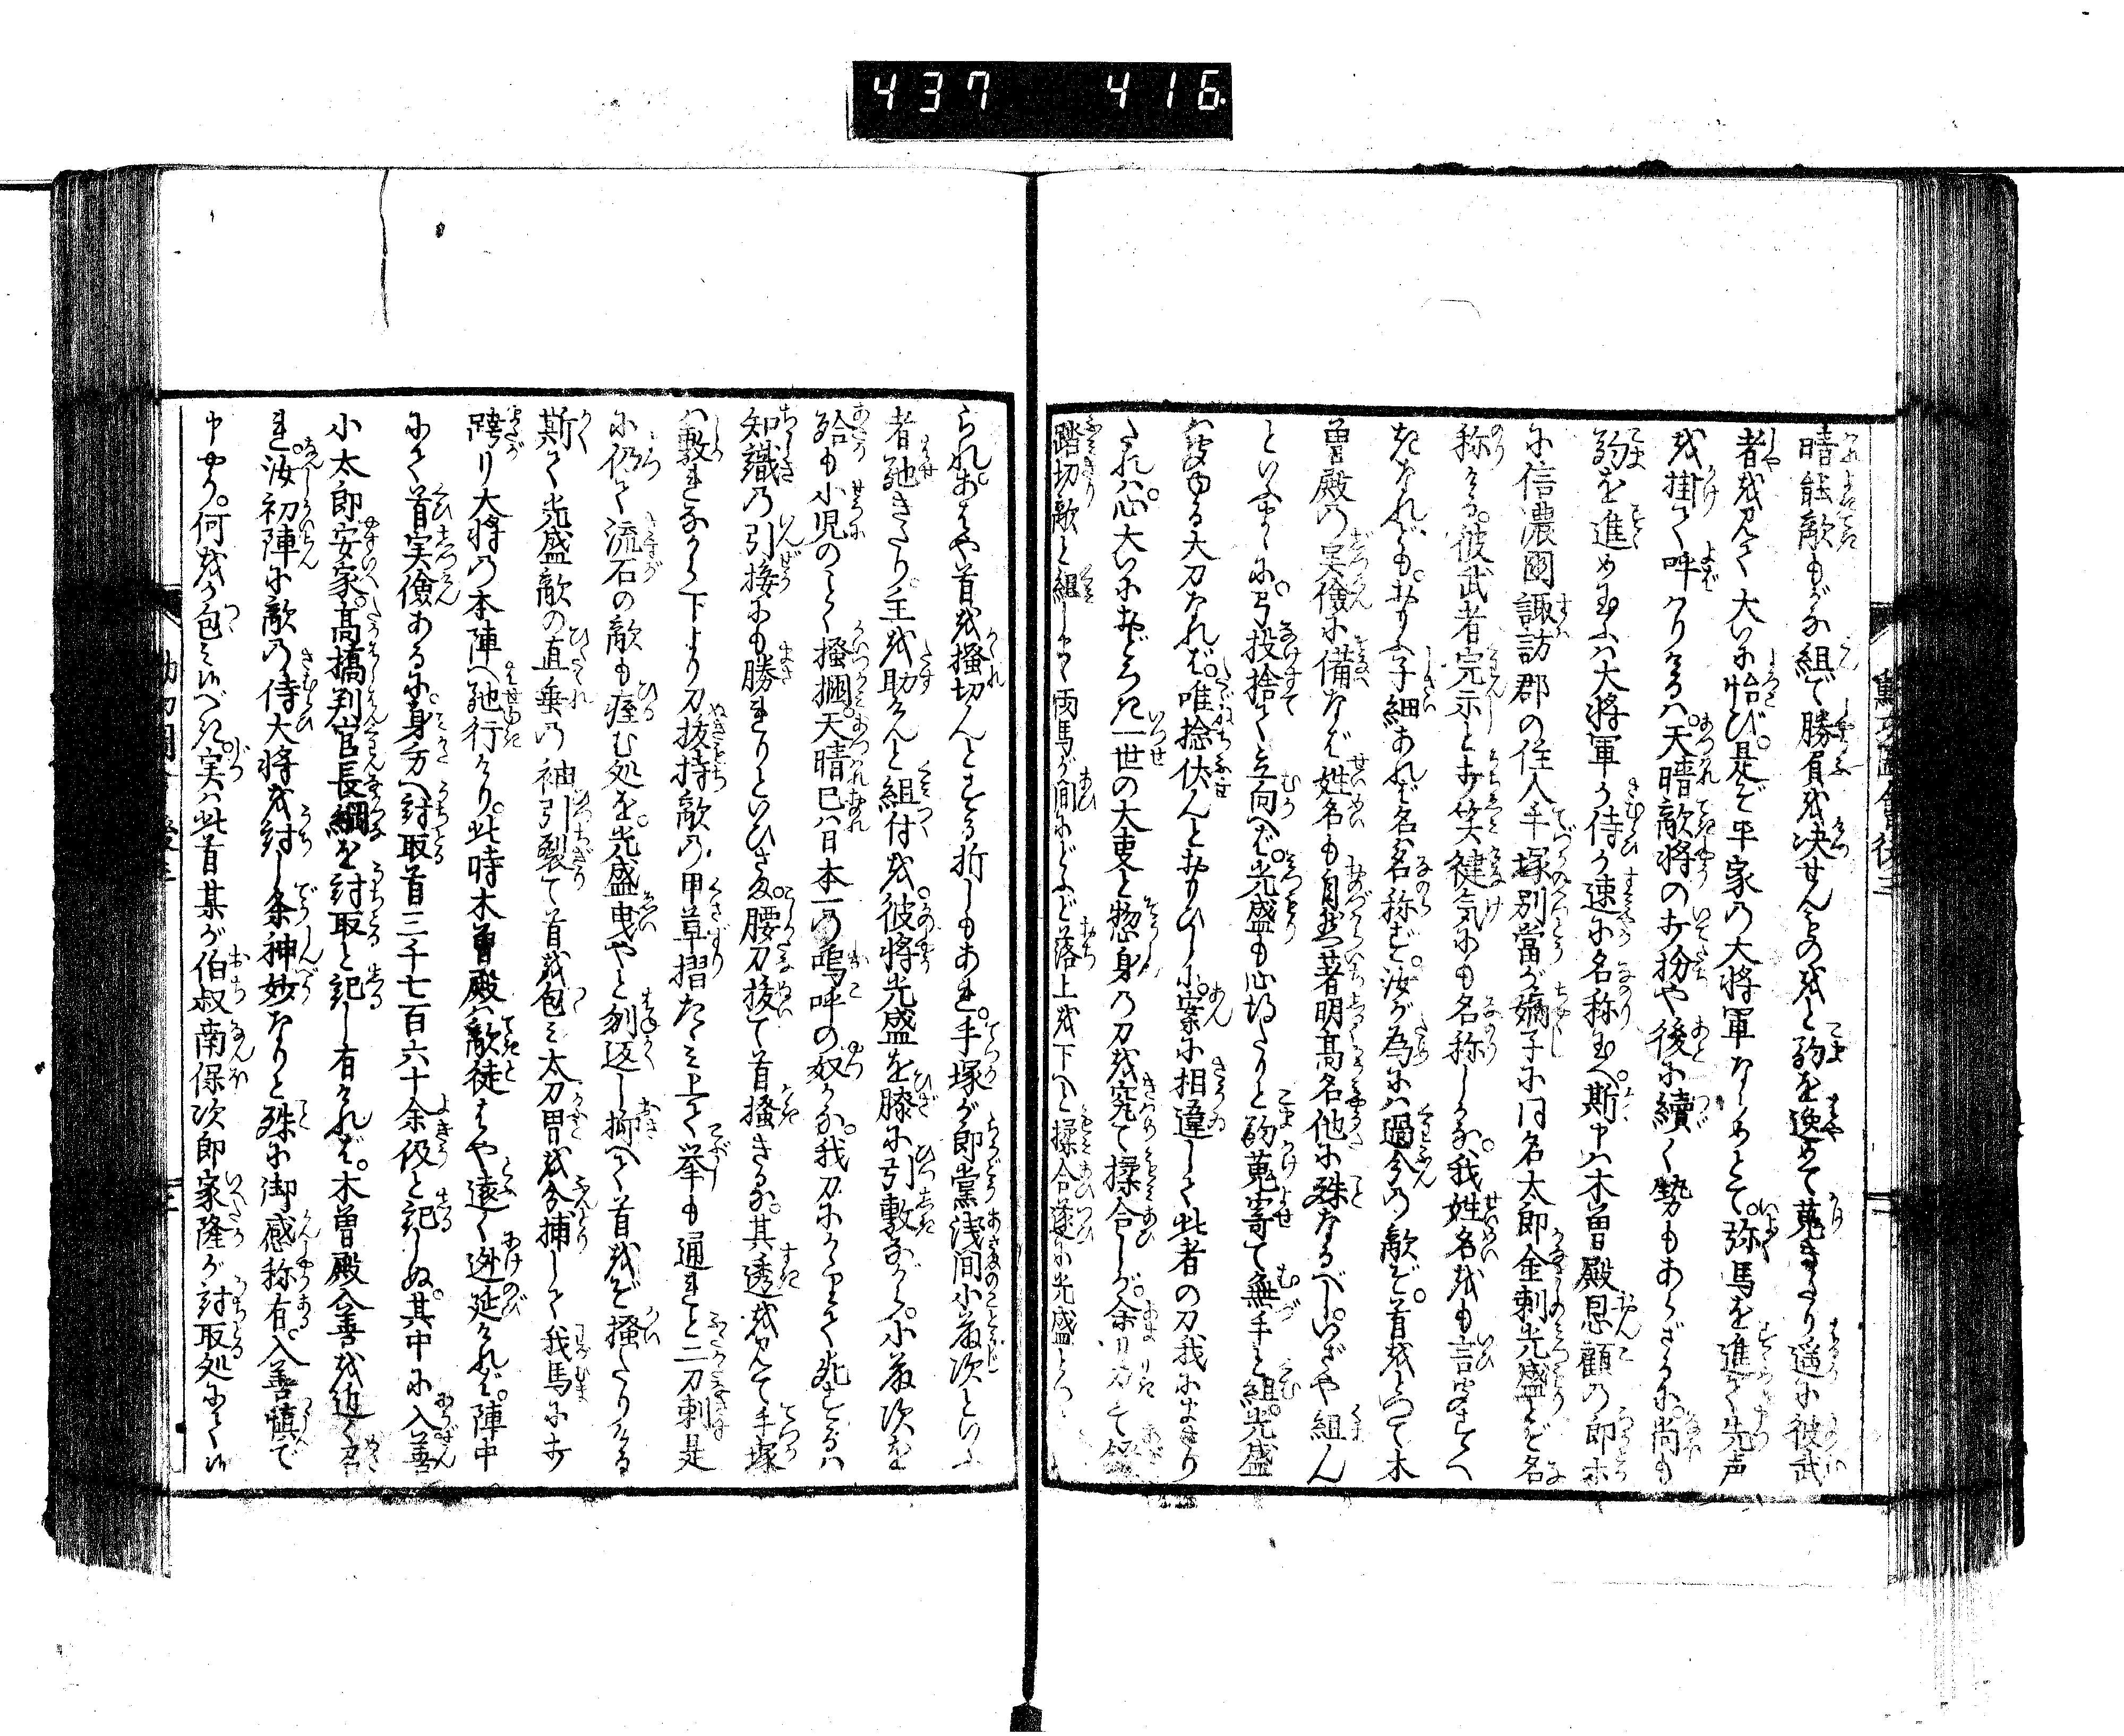 437 416
晴能敵もがな組で勝負を決せんものをと駒を逸めて蒐きたり遥に彼武
者を見て大いに怡び。是ぞ平家の大将軍ならめとて。弥馬を進て先声
を掛て呼はりけるは。天晴敵将の打扮や後に續く勢もあらざるに。尚も
駒を進め玉ふは大将軍か侍か速に名称玉へ。斯申は木曽殿恩顧の郎等
に信濃國諏訪郡の住人手塚別當が嫡子に同名太郎金刺光盛とぞ名
称ける。彼武者完示と打笑健気にも名称しよな。我姓名をも言べきすべ
きなれども。おもふ子細あれば名は名称ず。汝が為には過分の敵ぞ。首をとつて木
曽殿の実儉に備なば姓名も自然著明高名他に殊なるべし。いざや組ん
といふまゝに。弓投捨て立向へば。光盛も心得たりと駒蒐寄て無手と組。光盛
は聞ゆる大刀なれば。唯捻伏んとおもひしに。案に相違して此者の刀我にまさり
たれば。心大いにおどろき一世の大叓と惣身の刀を究て揉合しが。余り刀して鐙
踏切敵と組しまゝ両馬が間にどふど落上を下へと揉合遂に光盛とつて
られ。あはや首を掻切んとする折しもあれ。手塚が郎黨浅間小藤次といふ
者馳きたり。主を助けんと組付を。彼将光盛を膝に引敷ながら。小藤次を
恰も小児のごとく掻摑。天晴己は日本一の嗚呼の奴かな。我刀にかゝりて死するは
知識の引接にも勝れりといひさま。腰刀抜て首掻きるが。其透を見て手塚
は敷れながら下より刀抜持敵の甲草摺たゝみ上て拳も通れと二刀刺。是
に仍て流石の敵も痓む処を。光盛曳やと刎返し抑へて首をぞ掻たりける
斯て光盛敵の直垂の袖引裂て首を包み太刀冑を分捕して我馬に打
跨り大将の本陣へ馳行けり。此時木曽殿は敵徒はや遠く迯延ければ。陣中
にて首実儉あるに。身方へ討取首三千七百六十余級と記しぬ。其中に入善
小太郎安家。髙橋判官長綱を討取と記し有ければ。木曽殿入善を近く召
れ。汝初陣に敵の侍大将を討し条神妙なりと殊に御感称有。入善慎で
申やう。何をか包み候べき。実は此首某が伯叔南保次郎家隆が討取処にて候